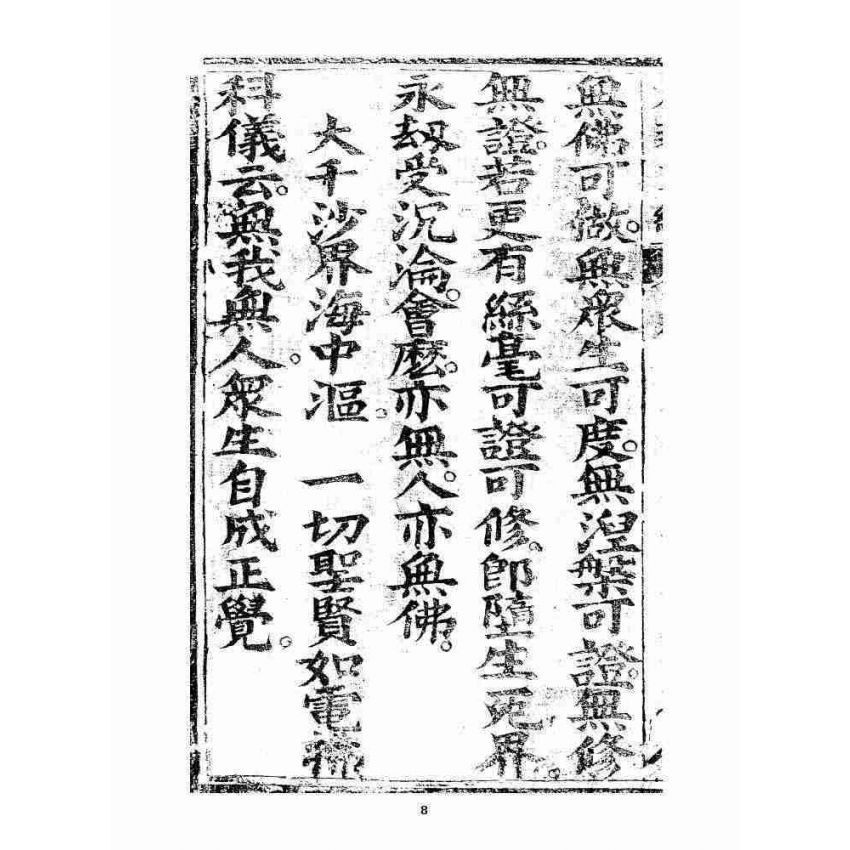 無佛可做無衆生可度無涅槃可證無修
無證若更有絲毫可證可修即墮生死界
永劫受沉淪會麽亦無人亦無佛
大千沙界海中漚 一切聖賢如電
科儀云無我無人衆生自成正覺
8